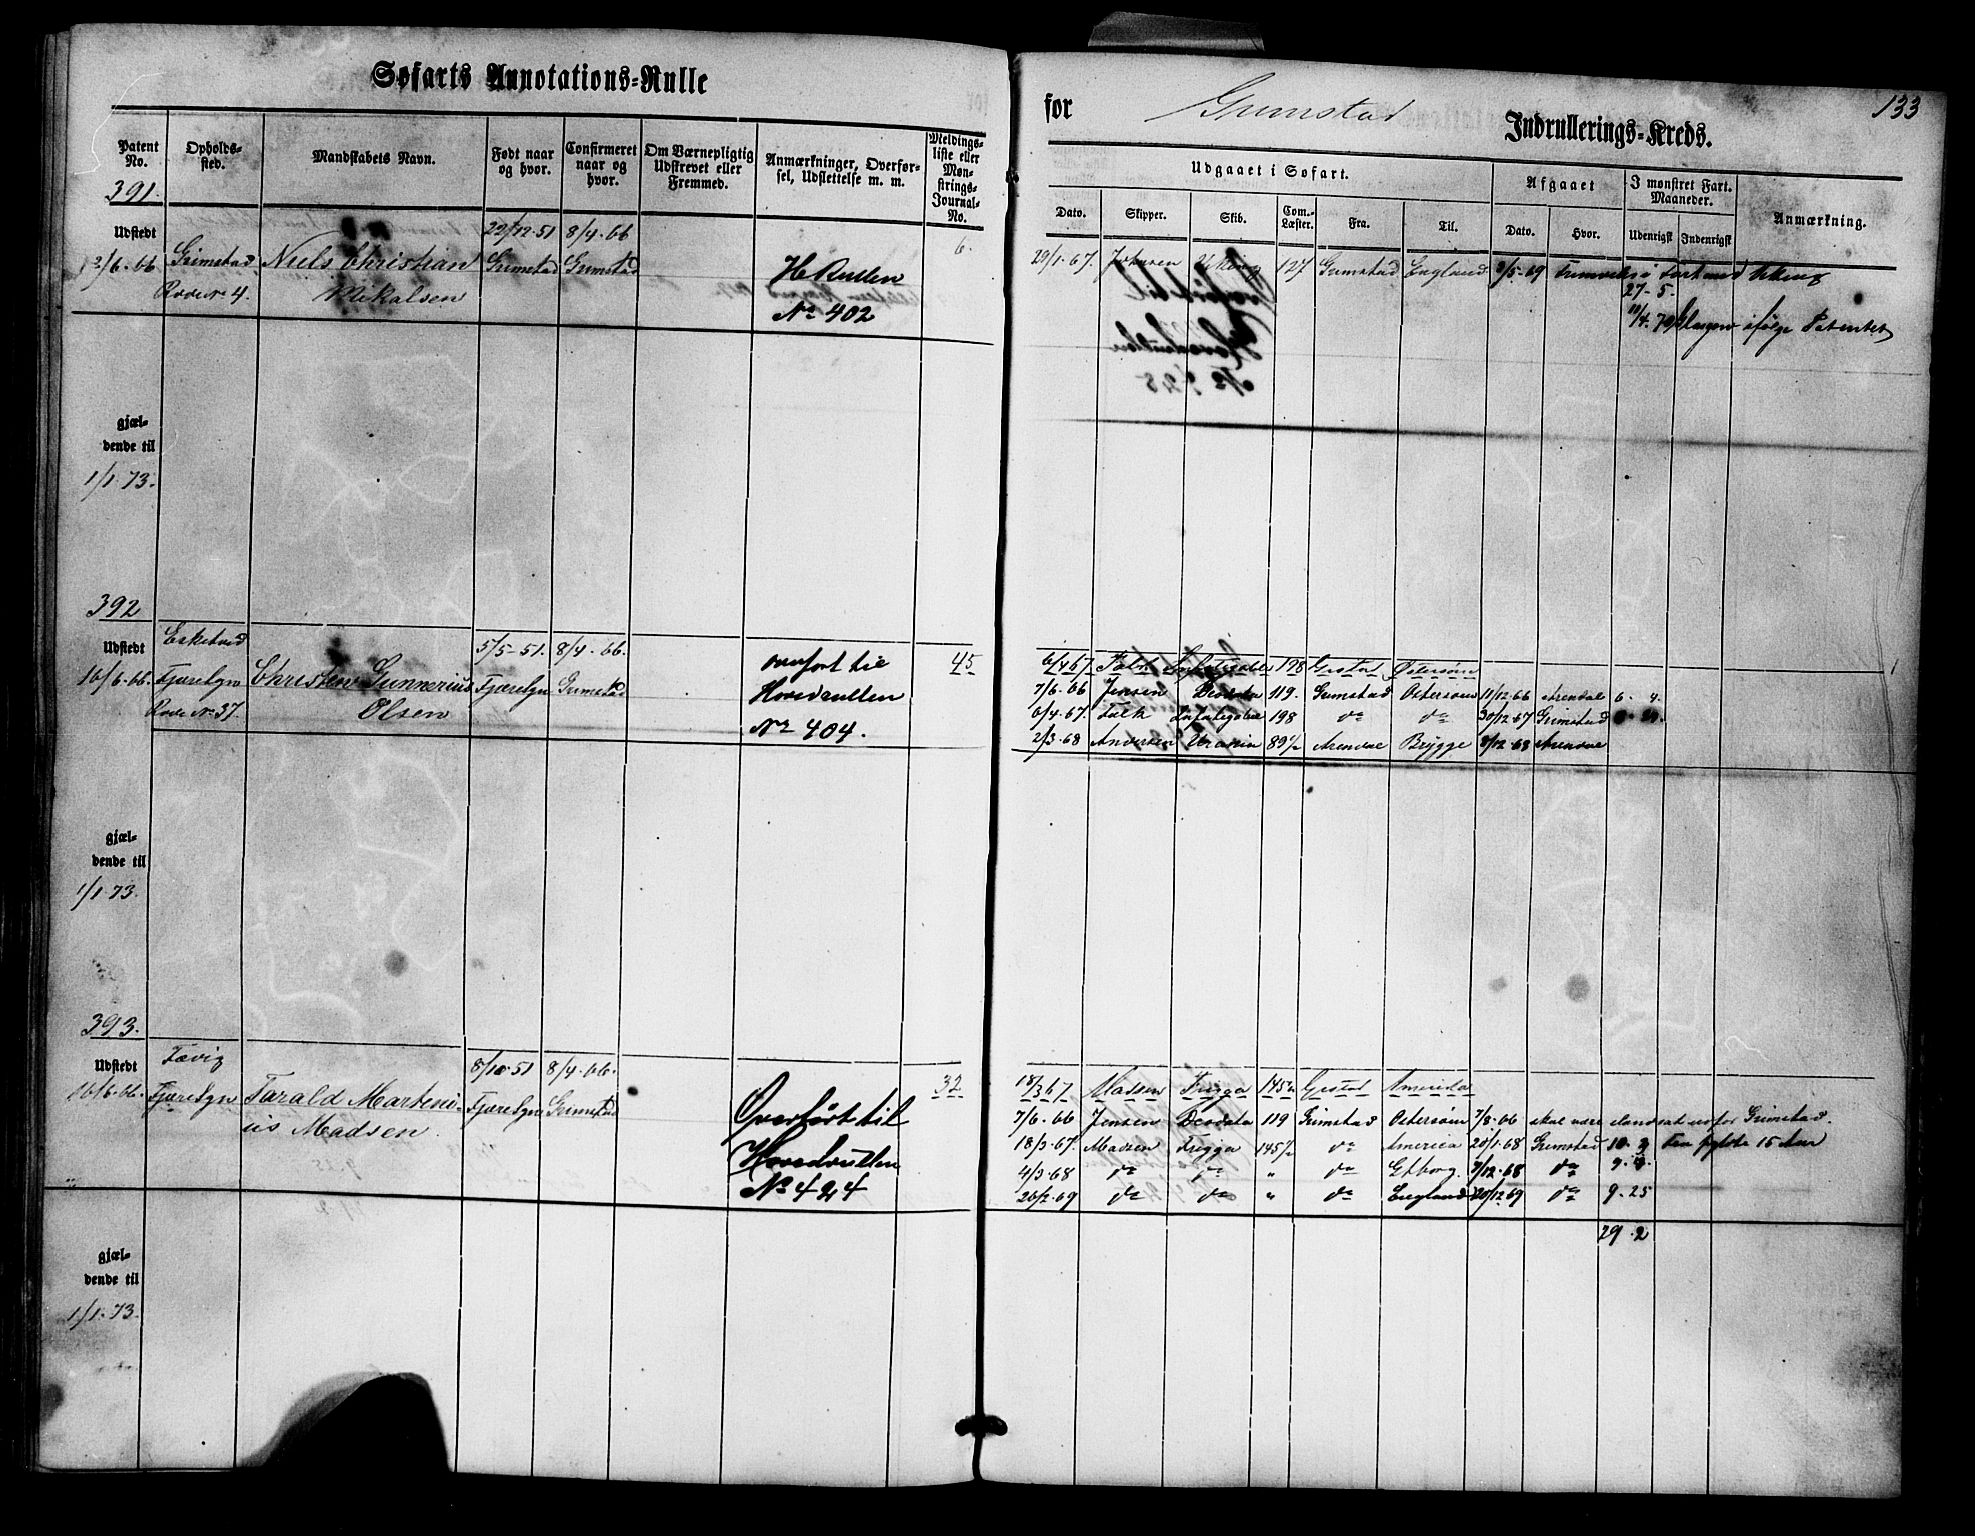 Søfarts Annotations=Rulle
for Grimstad Indrullerings=Kreds.
133
Patent No.
Opholds-sted.
Mandskabets Navn.
Født naar og hvor.
Confirmeret naar og hvor.
Om Værnepligtig Udskrevet eller Fremmed.
Anmærkninger, Overførsel, Udslettelse m. m.
Meldings-liste eller Mønstrings-Journal-No.
Udgaaet i Søfart.
Afgaaet
I mønstret Fart. Maaneder.
Anmærkning.
Dato.
Skipper.
Skib.
Com.-Læster.
Fra.
Til.
Dato.
Hvor.
Udenrigsk
Indenrigsk
391.
Udstedt
12/6.66
Grimstad
Rode No 4.
Niels Christian
Mikalsen
29/12.51
Grimstad
8/4.66
Grimstad
H Rullen
No 402
6.
29/1.67. 127 Grimstad England 9/5.69
27-5.
ifølge Patentet
gjæl-
dende til
1/1.73.
392
Udstedt
16/6.66.
Esketved
Fjæresgn
Rode No 37.
Christen Gunnerius
Olsen
5/5-51.
Fjæresgn
8/4.66.
Grimstad
overført til
Hovedrullen
No 404.
45
6/4 67. Falk 198 Grstad Østersøen
7/6.66 Jensen Deodata 119. Grimstad Østersøen 11/12.66 Arendal 6. 4.
6/4.67. Falk 198 do do 30/12.67 Grimstad
2/3.68 Andersen Urania 89½ Arendal Brügge 8/12.68 Arendal
gjæl-
dende til
1/1.73.
393.
Udstedt
16/6.66.
Fævig
Fjæresgn
Tarald Marteni-
us Madsen
8/10.51
Fjæresgn
8/4.66.
Grimstad
Overført til
Hovedrullen
No 424
32
18/3 67 Madsen Frigga 145½ Grstad America
7/6.66 Jensen Deodata 119 Grimstad Østersøen 7/8.66 skal være ilandsat udfor Grimstad.
18/3.67. Madsen Frigga 145½ do America 20/1.68 Grimstad 10. 3
4/3.68 do do " do Gtborg. 7/12.68 do 9.
26/2.69 do do " do England 20/12.69 do 9. 25
29. 2
gjæl-
dende til
1/1.73.